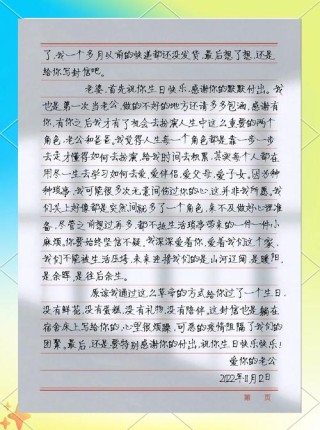 了,我一个多月以前的快递都还没发货,最后想了想,还是
给你写封信吧。
老婆,首先祝你生日快乐,感谢你的默默付出。我
也是第一次当老公,做的不好的地方还请多多包涵,感谢有
你,有你之后我才有了机会去扮演人生中这么重要的两个
角色,老公和爸爸。我觉得人生每一个角色都是靠一步一步
去走才懂得如何去扮演,给我时间去积累,其实每个人都在
用尽一生去学习如何去爱伴侣,爱父母,爱子女。因为种种
琐事,我可能很多次无意间伤过你的心,这并非我所愿,我
们头上好像都是突然间就多了一个角色,来不及做好心理准
备,尽管之前想过再多,都不抵生活琐事带来的一件一件小
麻烦,你要始终坚信不疑,我深深爱着你,爱着我们这个家,
我们不能被生活压垮,未来迎接我们的是山河辽阔,是暖阳,
是余晖,是往后余生。
原谅我通过这么草率的方式给你过了一个生日,
没有鲜花,没有蛋糕,没有礼物,没有陪伴,这封信也是躺在
宿舍床上写给你的,心里很烦躁,可恶的疫情阻隔了我们的
团聚。最后,还是要特别感谢你的付出,祝你生日快乐快乐!
爱你的老公
2022年11月12日
第 页